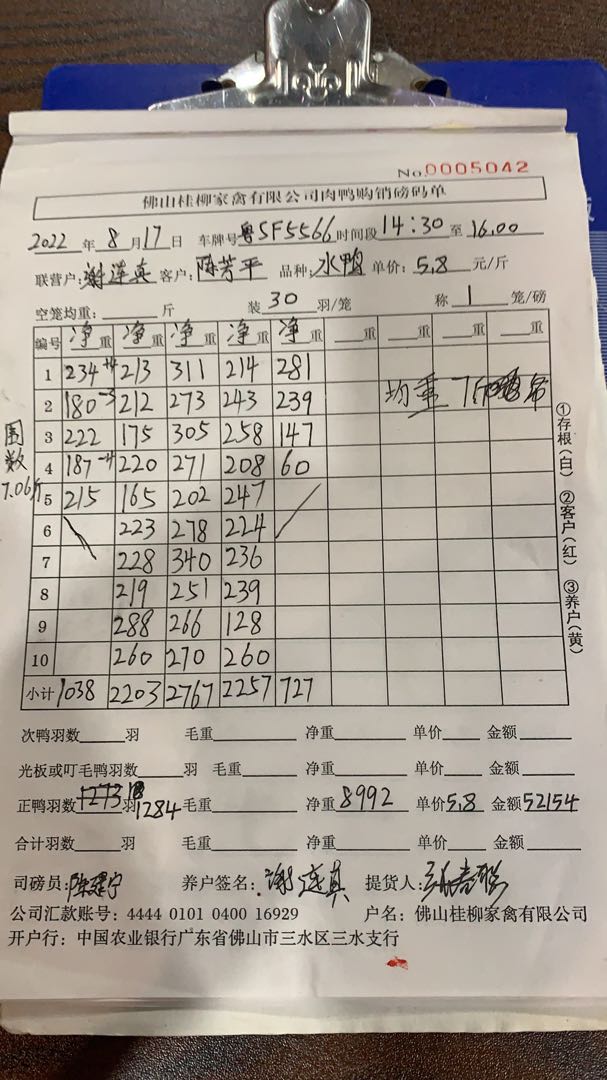 No.0005042
佛山桂柳家禽有限公司肉鸭购销磅码单
2022 年 8 月 17 日 车牌号 粤SF5566 时间段 14:30 至 16.00
联营户: 谢连真 客户: 陈芳平 品种: 水鸭 单价: 5.8 元/斤
空笼均重: 斤 装 30 羽/笼 称 1 笼/磅
编号 净重 净重 净重 净重 净重 重 重 重 重
1 234+4 213 311 214 281
2 180-3 212 273 243 239 均重
3 222 175 305 258 147
4 187-4 220 271 208 60
5 215 165 202 247
6 223 278 224
7 228 340 236
8 219 251 239
9 288 266 128
10 260 270 260
小计 1038 2203 2767 2257 727
围数
7.06斤
①存根(白) ②客户(红) ③养户(黄)
次鸭羽数 羽 毛重 净重 单价 金额
光板或叮毛鸭羽数 羽 毛重 净重 单价 金额
正鸭羽数 1273 羽 1284 毛重 净重 8992 单价 5.8 金额 52154
合计羽数 羽 毛重 净重 单价 金额
司磅员: 陈建宁 养户签名: 谢连真 提货人:
公司汇款账号: 4444 0101 0400 16929 户名: 佛山桂柳家禽有限公司
开户行: 中国农业银行广东省佛山市三水区三水支行